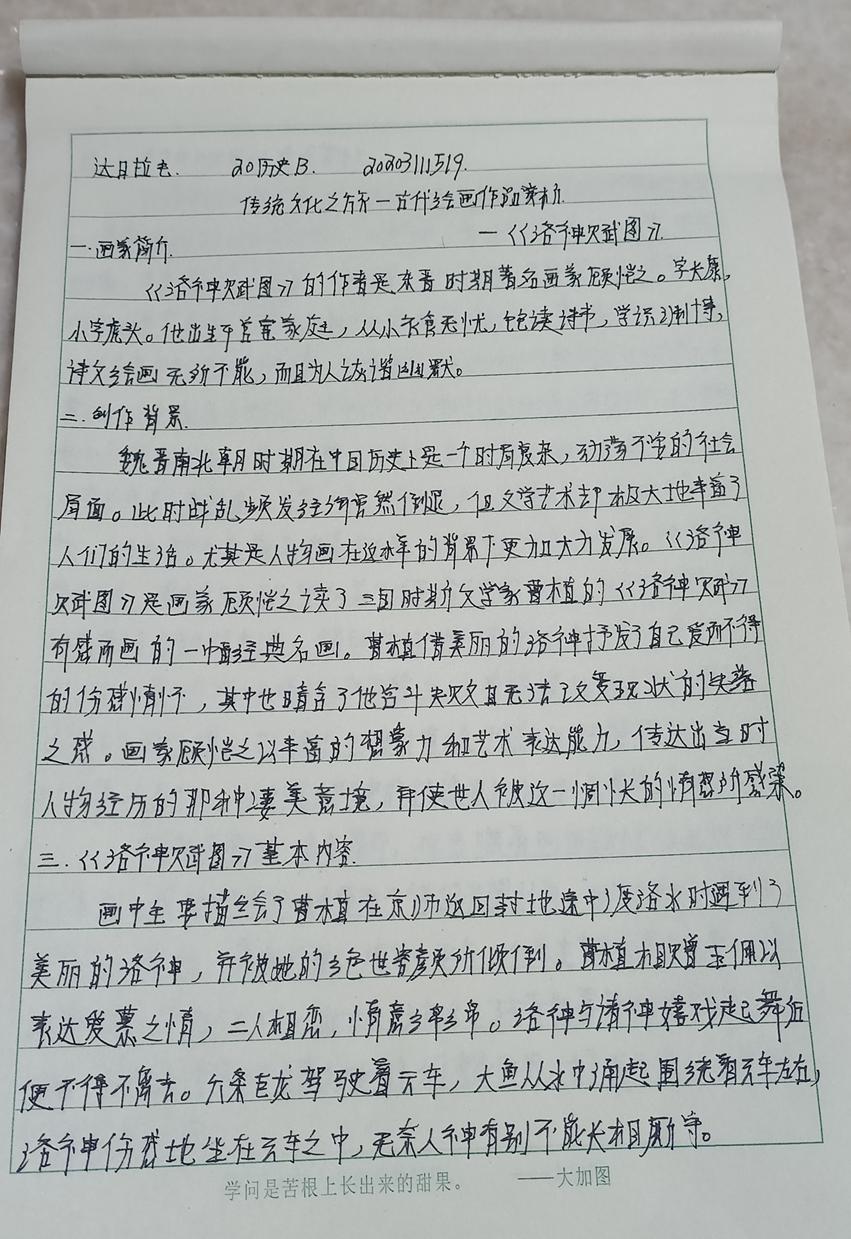 达日拉七. 20历史B. 20203111519.
传统文化之旅一古代绘画作品赏析.
一.画家简介. 一《洛神赋图》.
《洛神赋图》的作者是东晋时期著名画家顾恺之。字长康,
小字虎头。他出生于官宦家庭,从小衣食无忧,饱读诗书,学识渊博,
诗文绘画无所不能,而且为人诙谐幽默。
二.创作背景.
魏晋南北朝时期在中国历史上是一个时局复杂,动荡不安的社会
局面。此时战乱频发经济虽然倒退,但文学艺术却极大地丰富了
人们的生活。尤其是人物画在这水年的背景下更加大力发展。《洛神
赋图》是画家顾恺之读了三国时期文学家曹植的《洛神赋》
有感而画的一幅经典名画。曹植借美丽的洛神抒发了自己爱而不得
的伤感情怀,其中也暗含了他奋斗失败又且无法改变现状的失落
之感。画家顾恺之以丰富的想象力和艺术表达能力,传达出当时
人物经历的那种凄美意境,并使世人被这一惆怅的情愁所感染。
三.《洛神赋图》基本内容.
画中主要描绘了曹植在京师返回封地途中渡洛水时遇到了
美丽的洛神,并被她的绝世容颜所倾倒。曹植相赠玉佩以
表达爱慕之情,二人相恋,情意绵绵。洛神与诸神嬉戏起舞后
便不得不离去。六条巨龙驾驶着云车,大鱼从水中涌起围绕着云车左右,
洛神伤感地坐在云车之中,无奈人神有别不能长相厮守。
学问是苦根上长出来的甜果。 ——大加图